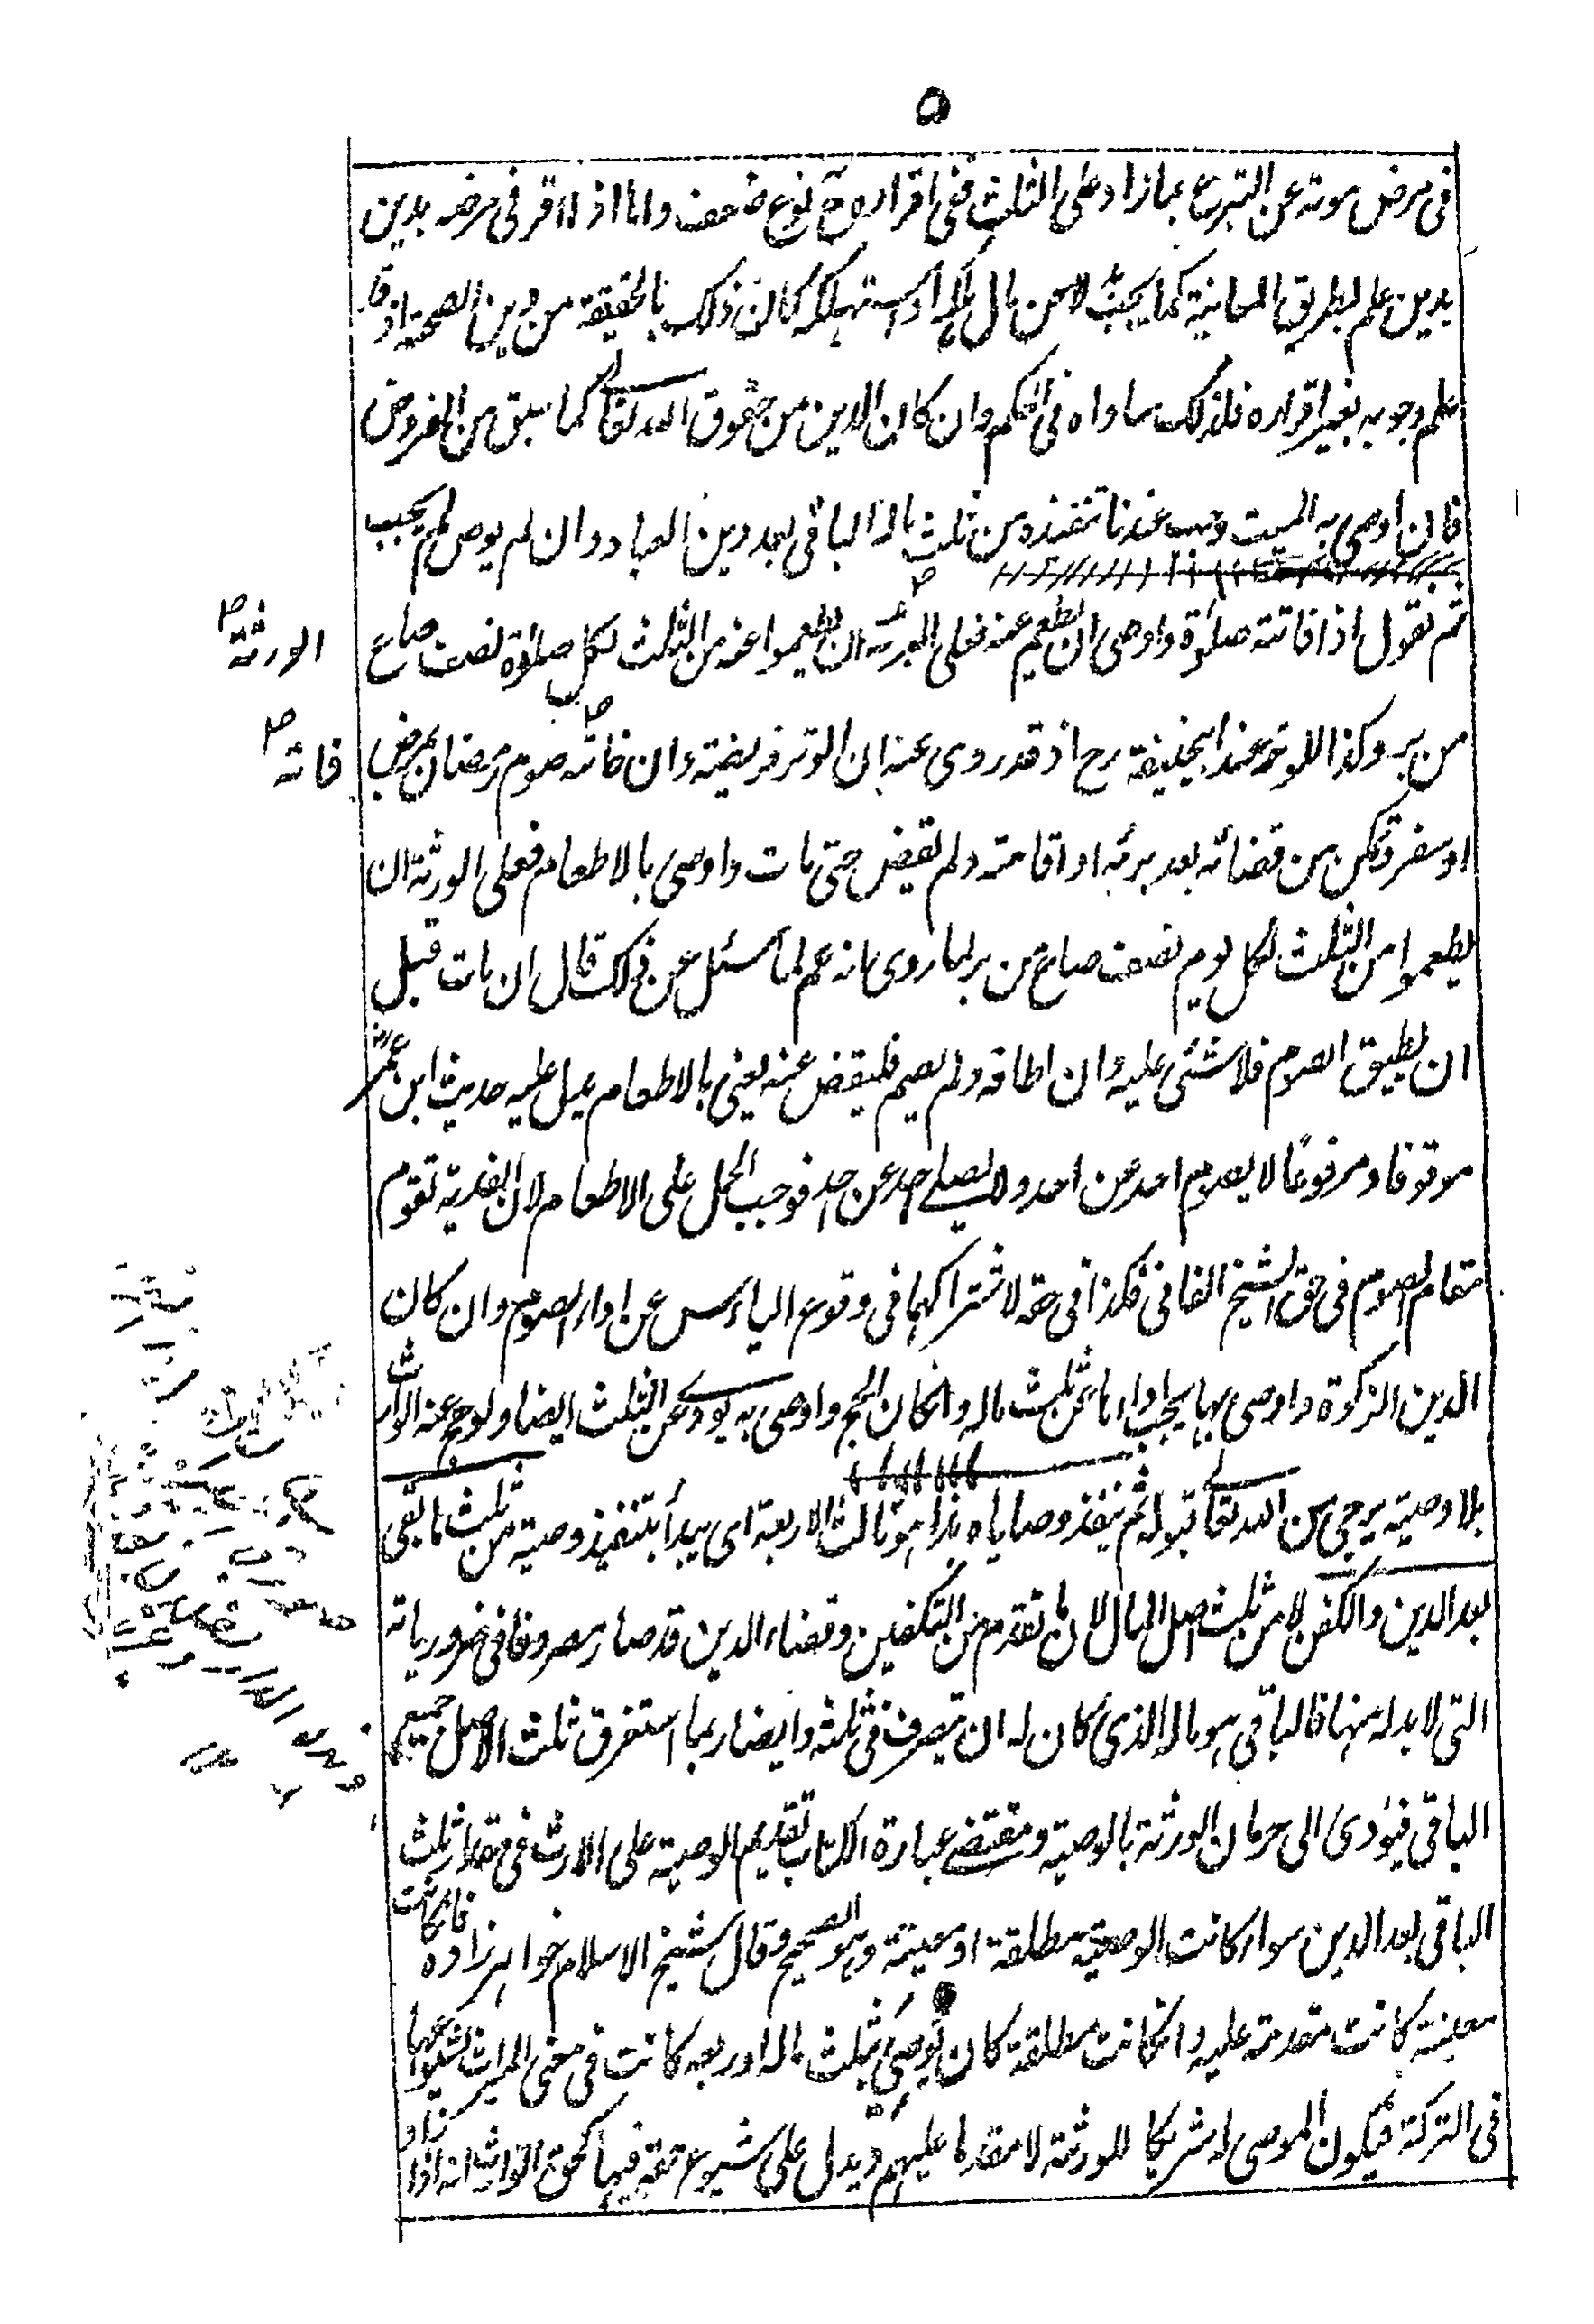 ٥
فى مرض موته عن التبرع بما زاد على الثلث ففى اقراره ح نوع ضعف واما اذا اقر فى مرضه بدين
بدين علم بطريق المعاينة كما يجب لا عن مال ملكه او استهلكه كان ذلك بالحقيقة من دين الصحة اذ قد
علم وجوبه بغير اقراره فلذلك ساواه فى الحكم وان كان الدين من حقوق الله تعالى كما سبق من الفروض
فان اوصى به الميت وجب عندنا تنفيذه من ثلث ماله الباقى بعد دين العباد وان لم يوص لم يجب
ثم نقول اذا فاتته صلوٰة واوصى ان يطعم عنه فعلى الورثة ان يطعموا عنه من الثلث لكل صلوٰة نصف صاع
الورثة صح
من بر وكذا للوتر عند ابيحنيفة رح اذ قد روى عنه ان الوتر فريضة وان فاته صوم رمضان بمرض
فاته صح
او سفر وتمكن من قضائه بعد برئه او اقامته ولم يقض حتى مات واوصى بالاطعام فعلى الورثة ان
يطعموا من الثلث لكل يوم نصف صاع من بر لما روى انه عم لما سئل عن ذلك قال ان مات قبل
ان يطيق الصوم فلا شئى عليه وان اطاقه ولم يصم فليقض عنه يعنى بالاطعام يدل عليه حديث ابن عمر رض
موقوفا ومرفوعًا لا يصوم احد عن احد ولا يصلى احد عن احد فوجب الحمل على الاطعام لان الفدية تقوم
مقام الصوم فى حق الشيخ الفانى فكذا فى حقه لاشتراكهما فى وقوع الياءس عن اداء الصوم وان كان
الدين الزكوة واوصى بها يجب اداءها من ثلث ماله وانكان الحج واوصى به يودى من الثلث ايضا ولو حج عنه الوارث
بلا وصية يرجى من الله تعالى قبوله ثم ينفذ وصاياه هذا هو ثالث الاربعة اى يبدأ بتنفيذ وصيته من ثلث ما بقى
بعد الدين والكفن لا من ثلث اصل المال لان ما تقدم من التكفين وقضاء الدين قد صار مصروفا فى ضرورياته
التى لا بد له منها فالباقى هو ماله الذى كان له ان يتصرف فى ثلثه وايضا ربما استغرق ثلث الاصل جميع
الباقى فيؤدى الى حرمان الورثة بالوصية ومقتضى عبارة الكتاب تقديم الوصية على الارث فى مقدار ثلث
الباقى بعد الدين سواء كانت الوصية مطلقة او معينة وهو الصحيح وقال شيخ الاسلام خواهر زاده فان كانت
معينة كانت متقدمة عليه وانكانت مطلقة كان يوصى بثلث ماله او ربعه كانت فى معنى الميراث لشيوعها
فى التركة فيكون الموصى له شريكا للورثة لا مقدما عليهم ويدل على شيوع حقه فيها كحق الوارث انه اذا زاد